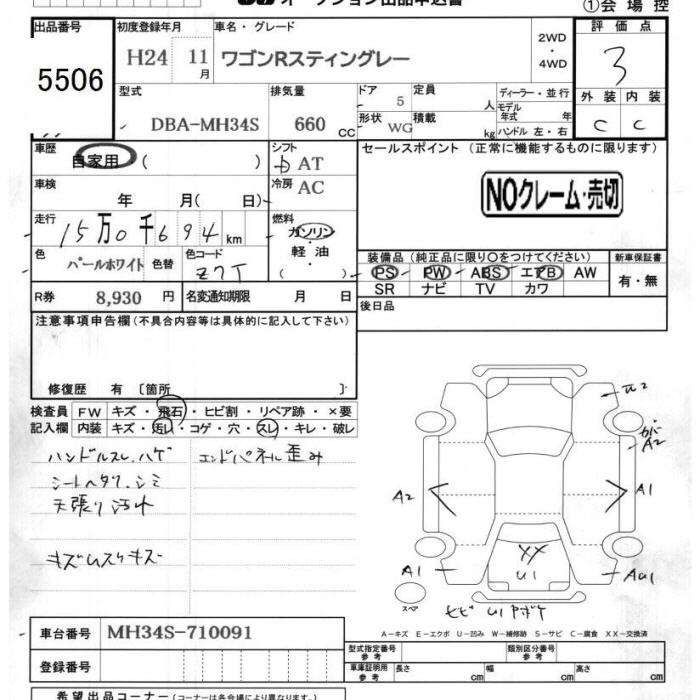 オークション出品申込書
①会場控
出品番号 5506
初度登録年月 H24 11月
車名・グレード ワゴンRスティングレー
2WD・4WD
評価点 3
外装 C 内装 C
型式 DBA-MH34S
排気量 660 CC
ドア 5 定員 人
形状 WG 積載 kg
ディーラー・並行
モデル年式 年
ハンドル 左・右
車歴 自家用 ( )
シフト AT
車検 年 月( 日)
冷房 AC
走行 15万0千694km
燃料 ガソリン 軽油 ( )
色 パールホワイト 色替 色コード Z7T
R券 8,930円 名変通知期限 月 日
セールスポイント (正常に機能するものに限ります)
NOクレーム・売切
装備品 (純正品に限り○をつけてください) 新車保証書
PS PW ABS エアB AW 有・無
SR ナビ TV カワ
後日品
注意事項申告欄 (不具合内容等は具体的に記入して下さい)
修復歴 有 〔箇所 〕
検査員記入欄
FW キズ・飛石・ヒビ割・リペア跡・×要
内装 キズ・汚れ・コゲ・穴・スレ・キレ・破レ
ハンドルスレ、ハゲ エンドパネル歪み
シートヘタリ、シミ
天張り汚れ
キズムスリキズ
ル2
カバーA2
A2 A1
XX
U1
A1 AU1
スペア
セビ U1 ヤボケ
A-キズ E-エクボ U-凹み W-補修跡 S-サビ C-腐食 XX-交換済
車台番号 MH34S-710091
登録番号
型式指定番号 参考 類別区分番号 参考
車庫証明用 参考 長さ cm 幅 cm 高さ cm
希望出品コーナー (コーナーは各会場により異なります。)